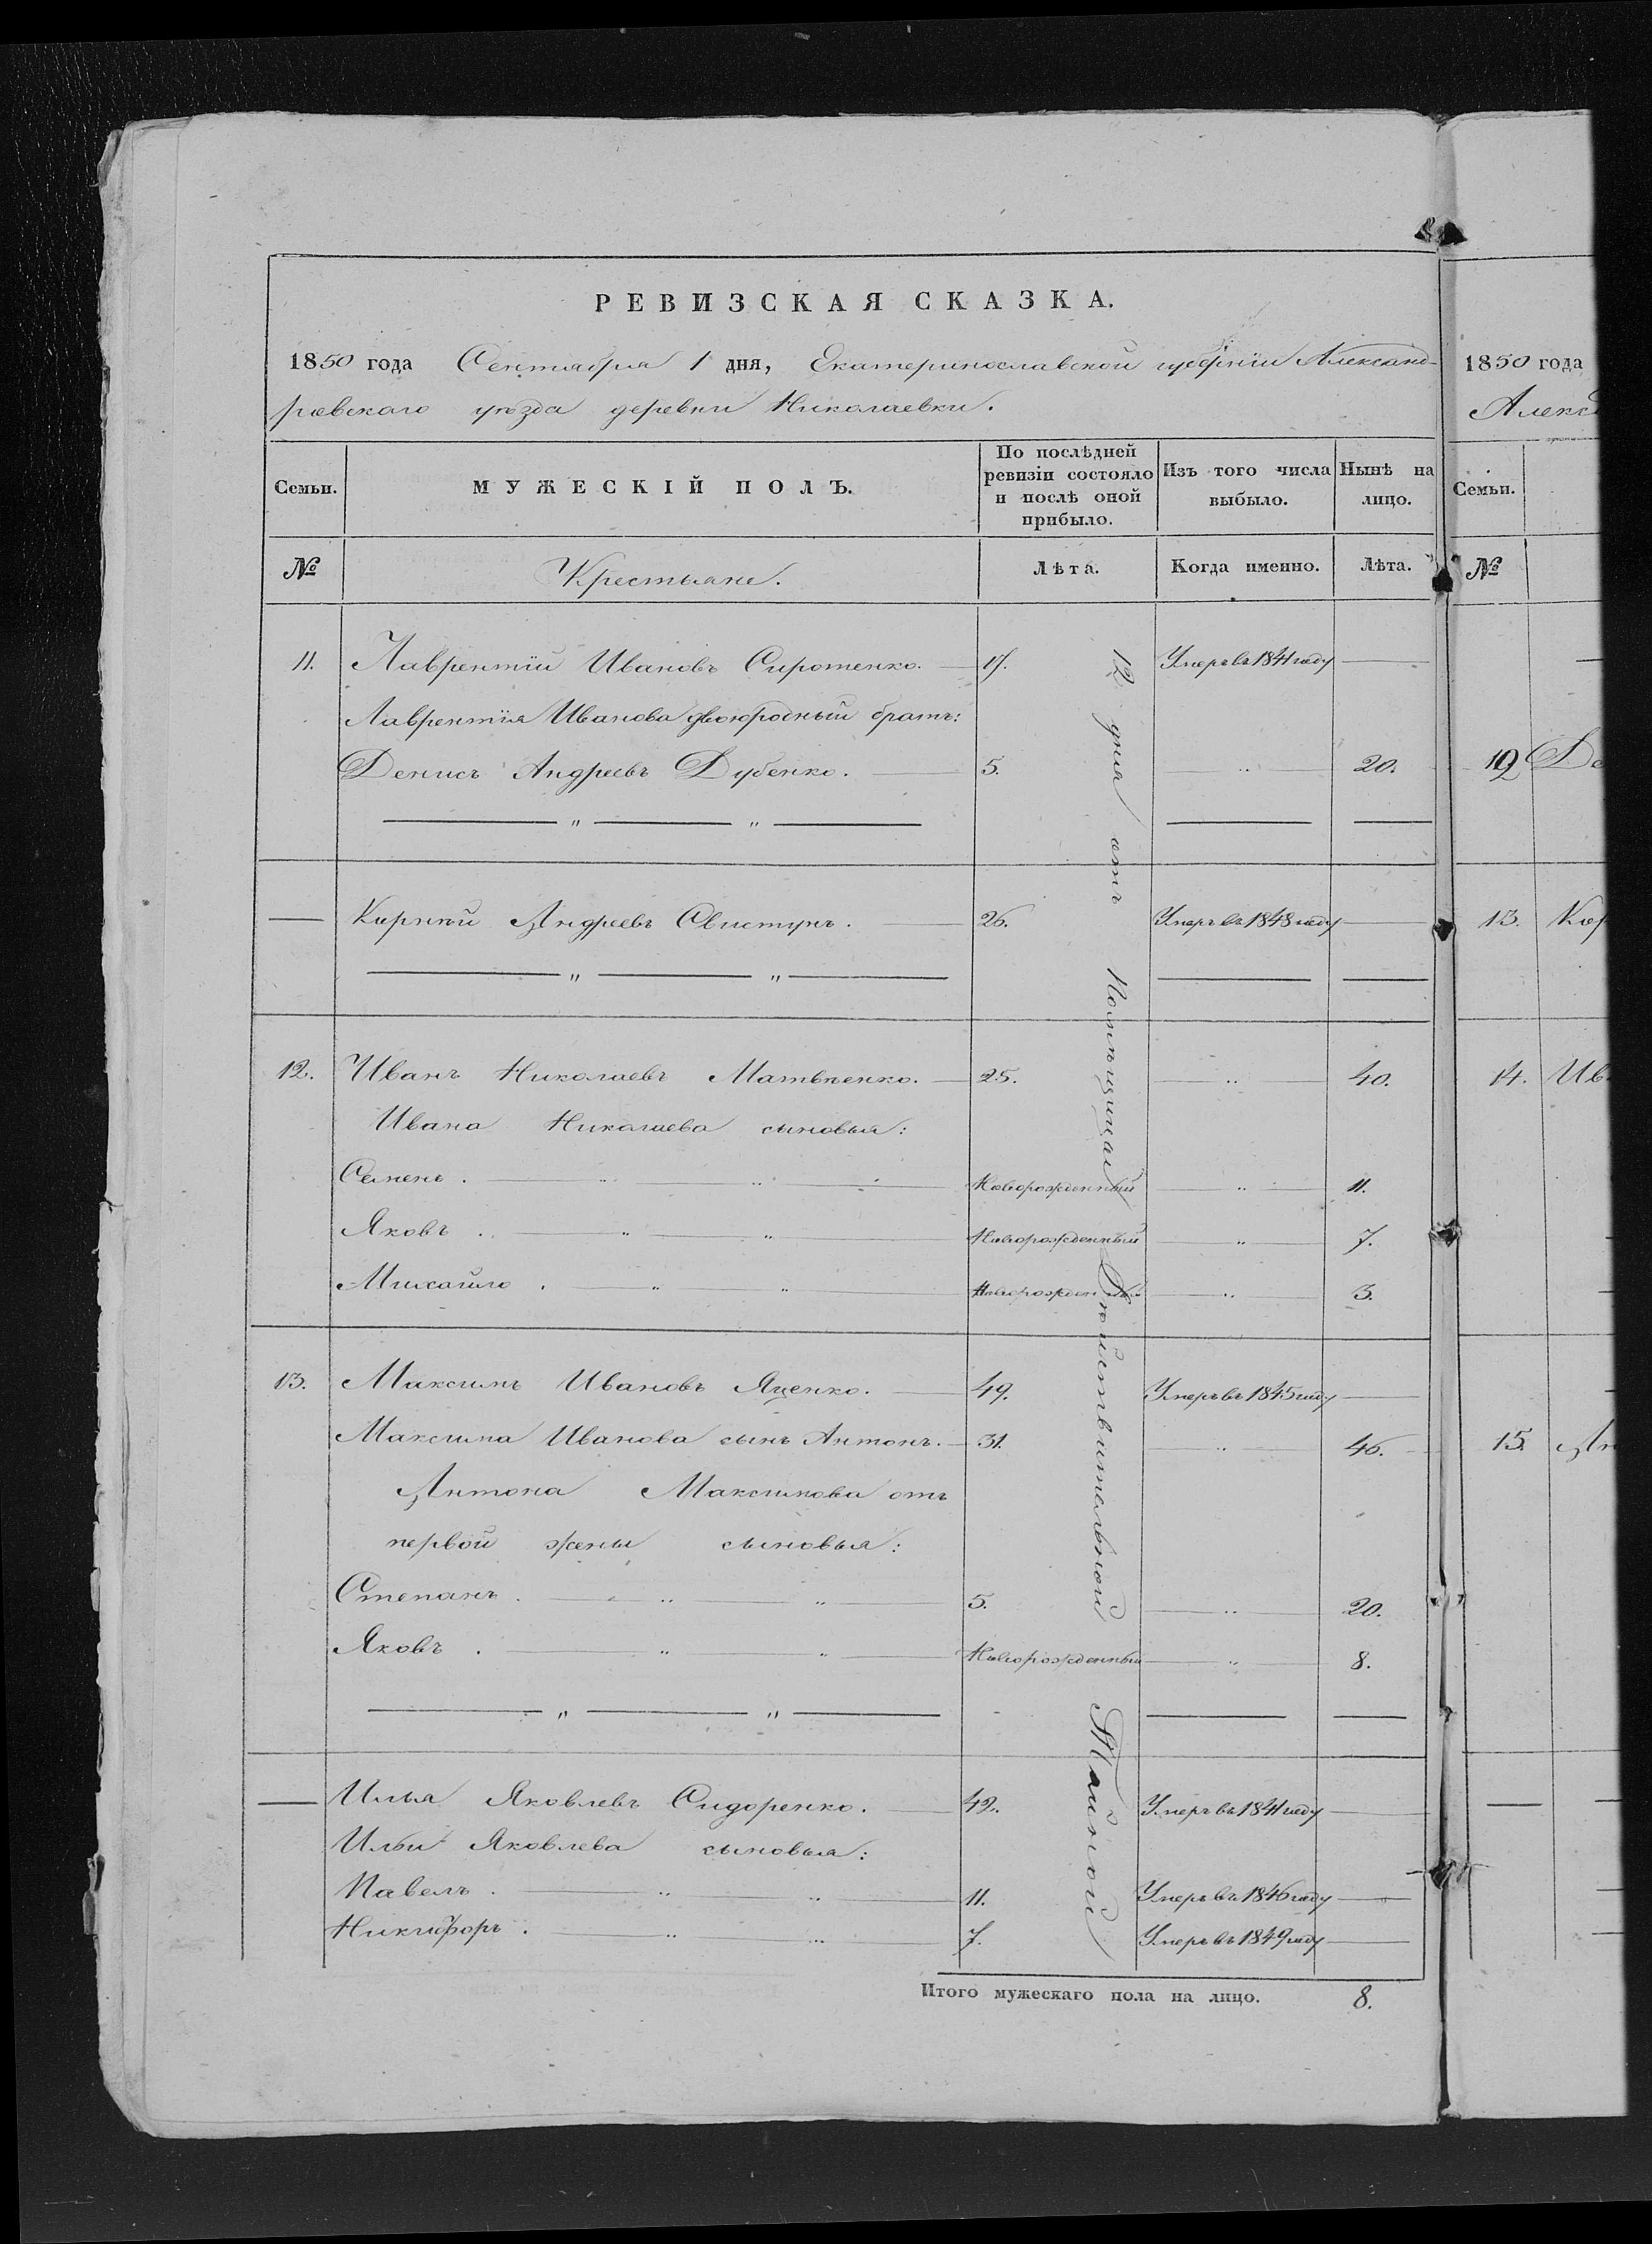 РЕВИЗСКАЯ СКАЗКА.
1850 года Сентября 1 дня, Екатеринославской губерніи Александ-
ровскаго уѣзда деревни Николаевки.
Семьи. МУЖЕСКІЙ ПОЛЪ. По послѣдней ревизіи состояло и послѣ оной прибыло. Изъ того числа выбыло. Нынѣ на лицо.
№ Крестьяне. Лѣта. Когда именно. Лѣта.
11. Лаврентій Ивановъ Сиротенко. 17. Умеръ въ 1841 году
Лаврентія Иванова двоюродный братъ:
Денисъ Андреевъ Дубенко. 5. 20.
Корнѣй Андреевъ Свистунъ. 26. Умеръ въ 1848 году
12. Иванъ Николаевъ Матвѣенко. 25. 40.
Ивана Николаева сыновья:
Семенъ. Новорожденный 11.
Яковъ. Новорожденный 7.
Михайло. Новорожденный 3.
13. Максимъ Ивановъ Яценко. 49. Умеръ въ 1845 году
Максима Иванова сынъ Антонъ. 31. 46.
Антона Максимова отъ
первой жены сыновья:
Степанъ. 5. 20.
Яковъ. Новорожденный 8.
Илья Яковлевъ Сидоренко. 42. Умеръ въ 1841 году
Ильи Яковлева сыновья:
Павелъ. 11. Умеръ въ 1846 году
Никифоръ. 7. Умеръ въ 1849 году
Итого мужескаго пола на лицо. 8.
12 дня отъ Помѣщицы Дѣйствительной Тайной
1850 года
Алекс
Семьи.
№
12 Де
13. Кор
14. Ив
15. Ан